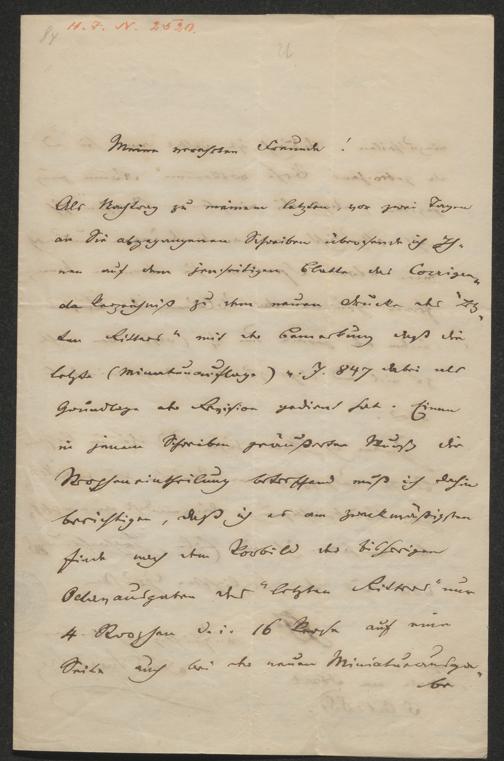 84 H. I. N. 2520.
Meine verehrten Freunde!
Als Nachtrag zu meinem letzten, vor zwei Tagen
an Sie abgegangenen Schreiben übersende ich Ih-
nen auf dem jenseitigen Blatte das Corrigen-
da Verzeichniß zu dem neuen Drucke des "Letz-
ten Ritters" mit der Bemerkung daß die
letzte (Miniaturauflage) v. J. 847 dabei als
Grundlage der Revision gedient hat. Einen
in jenem Schreiben geäußerten Wunsch die
Strophen eintheilung betreffend muß ich dahin
berichtigen, daß ich es am zweckmäßigsten
finde nach dem Vorbild der bisherigen
Octavausgaben des "letzten Ritters" nur
4 Strophen d. i. 16 Verse auf eine
Seite auch bei der neuen Miniaturausga-
be